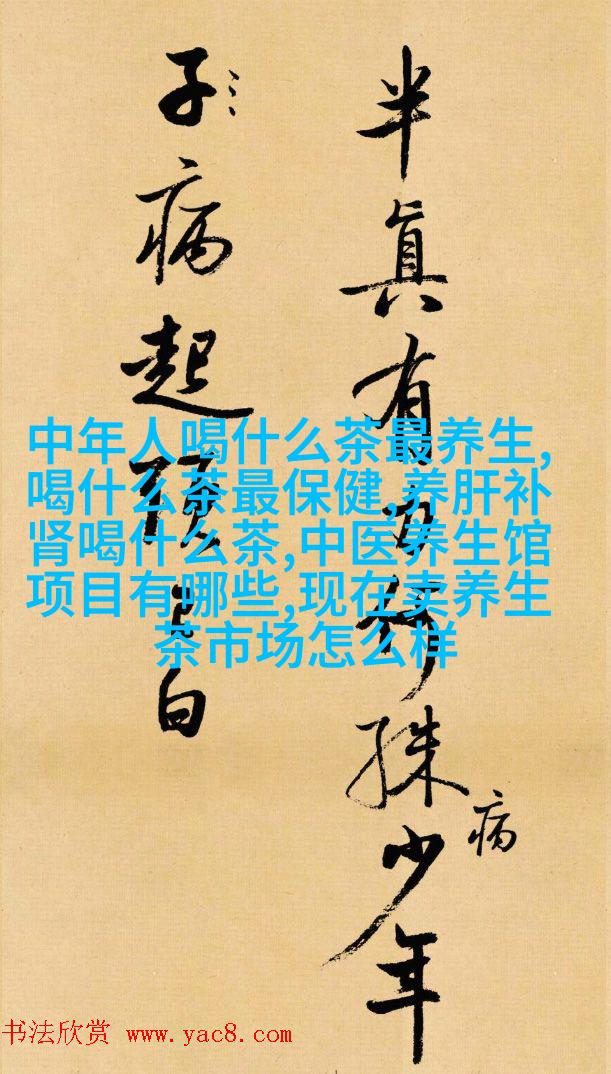 半眞有力何殊少年
病
子病起頭已白
中年人喝什么茶最养生,
喝什么茶最保健,养肝补
肾喝什么茶,中医养生馆
项目有哪些,现在卖养生
茶市场怎么样
书法欣赏 www.yac8.com